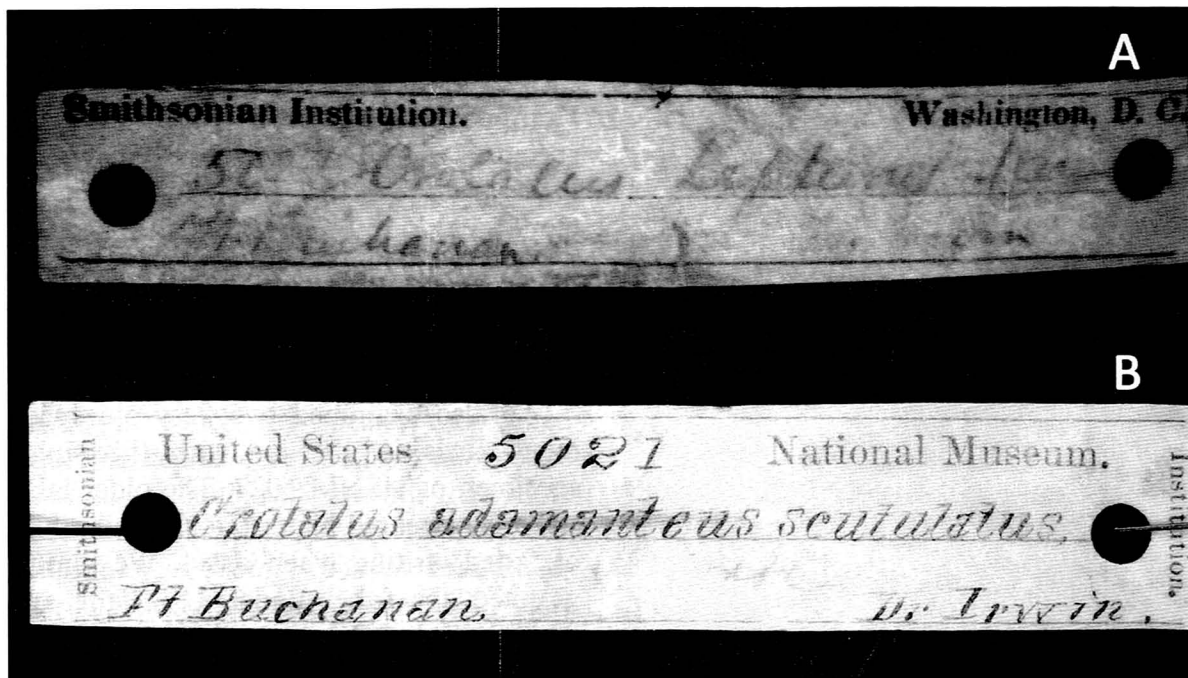 A
Smithsonian Institution. Washington, D. C.
Crotalus
Buchanan.
B
United States, 5021 National Museum.
Smithsonian
Institution.
Crotalus adamanteus scutulatus.
Ft Buchanan. Dr Irwin.